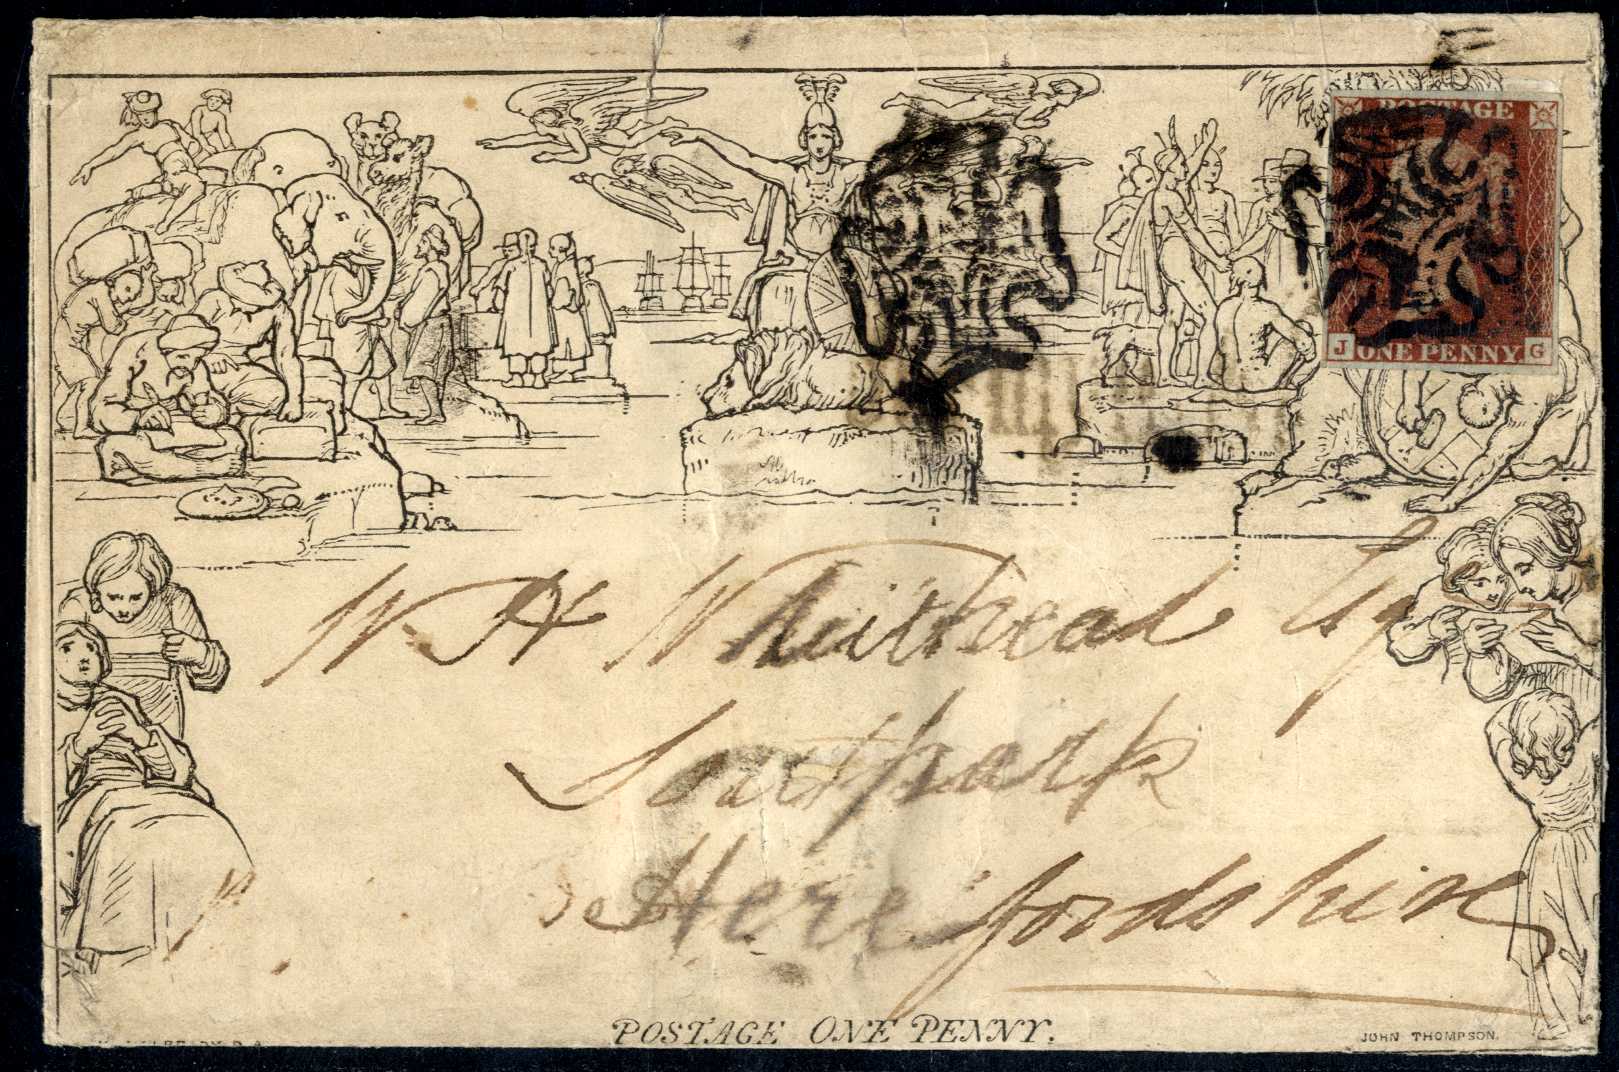 POSTAGE
J ONE PENNY G
W H Whithead Esq
Southpark
Herefordshire
POSTAGE ONE PENNY.
JOHN THOMPSON.